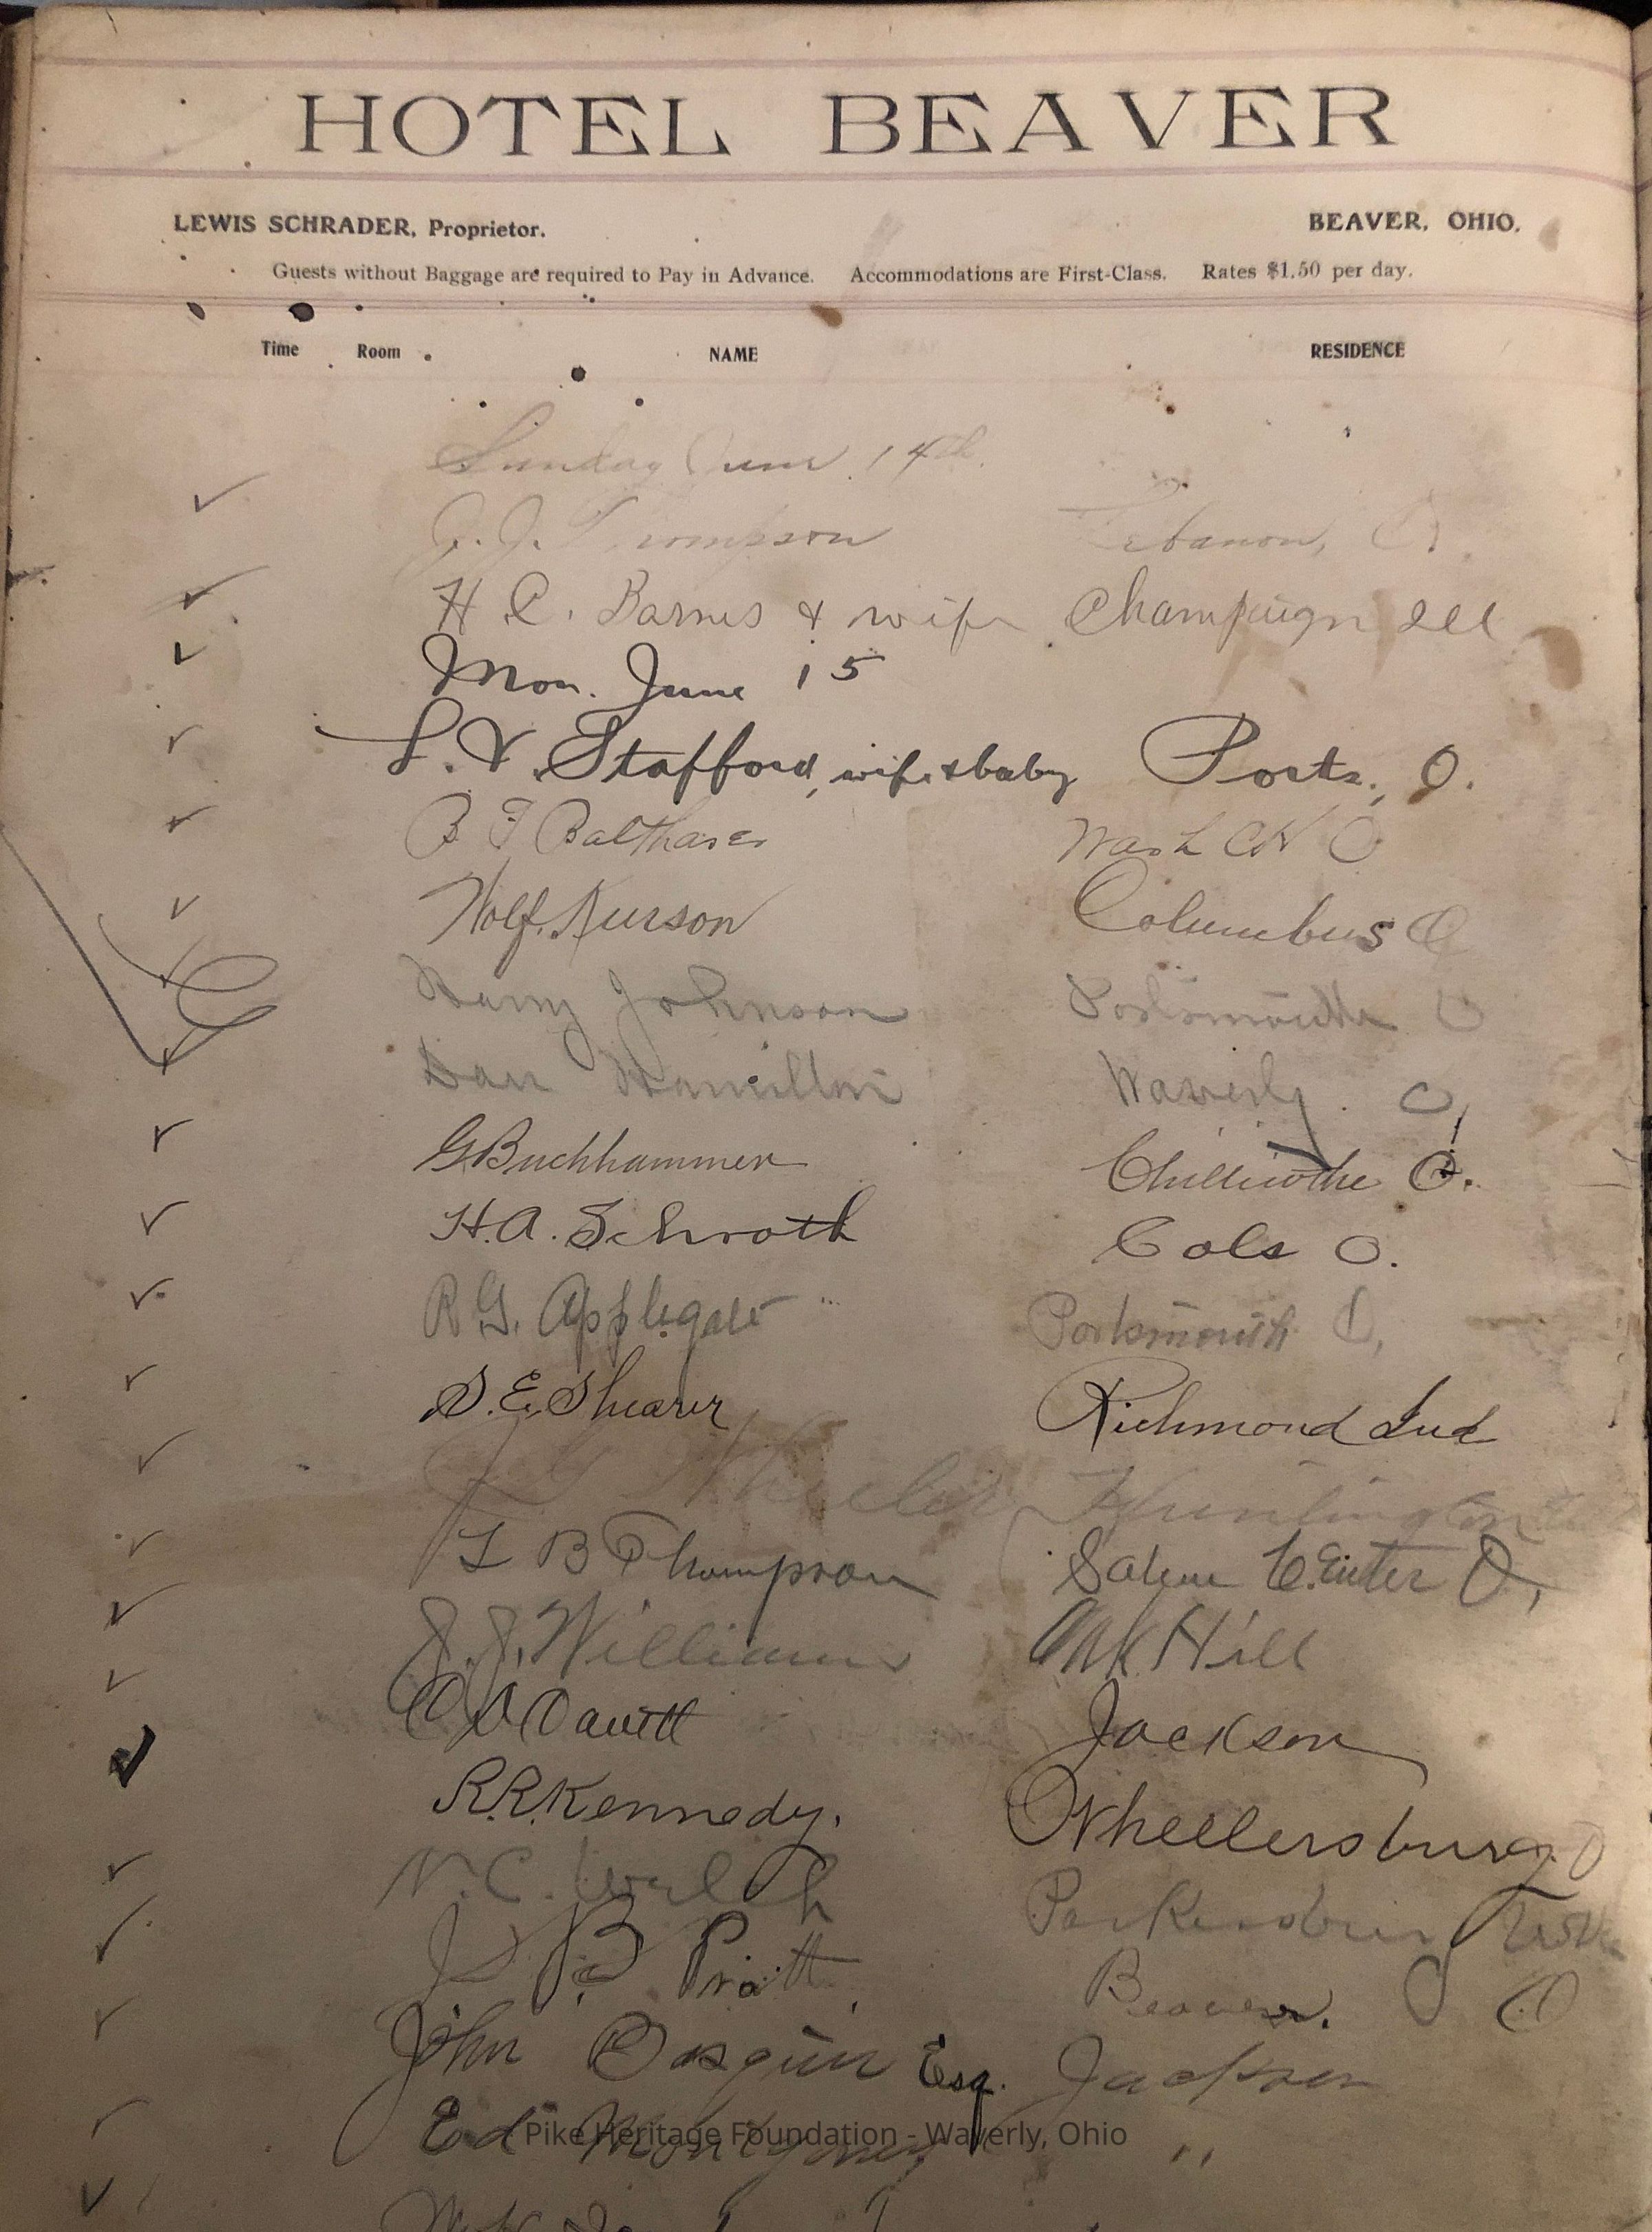 HOTEL BEAVER
LEWIS SCHRADER, Proprietor. BEAVER, OHIO.
Guests without Baggage are required to Pay in Advance. Accommodations are First-Class. Rates $1.50 per day.
Time Room NAME RESIDENCE
Sunday June 14th.
J. J. Thompson Lebanon, O.
H. C. Barnes & wife Champaign Ill
Mon. June 15
L. V. Stafford, wife & baby Ports., O.
B F Balthaser Wash CH O
Wolf. Kurson Columbus O
Harry Johnson Portsmouth O
Dan Hamilton Waverly. O
G Buchhammer Chillicothe O.
H. A. Schroth Cols O.
R G. Applegate Portsmouth O,
S. E. Shearer Richmond Ind
Wheeler Huntington
L B Thompson Salem Center O,
J. J. Williams Oak Hill
Davitt Jackson
R. R. Kennedy. Wheelersburg O
N. C. Welch Parkersburg W Va
J. B. Pratt Beaver. O
John Esq. Jackson
Ed Montgomery "
Pike Heritage Foundation - Waverly, Ohio